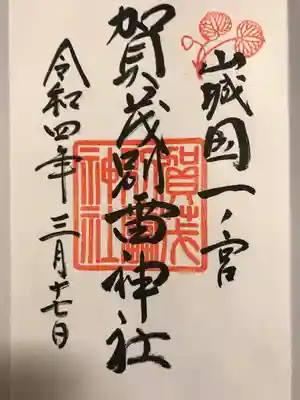 山城国一ノ宮
賀茂別雷神社
令和四年三月十七日
賀茂
別雷
神社